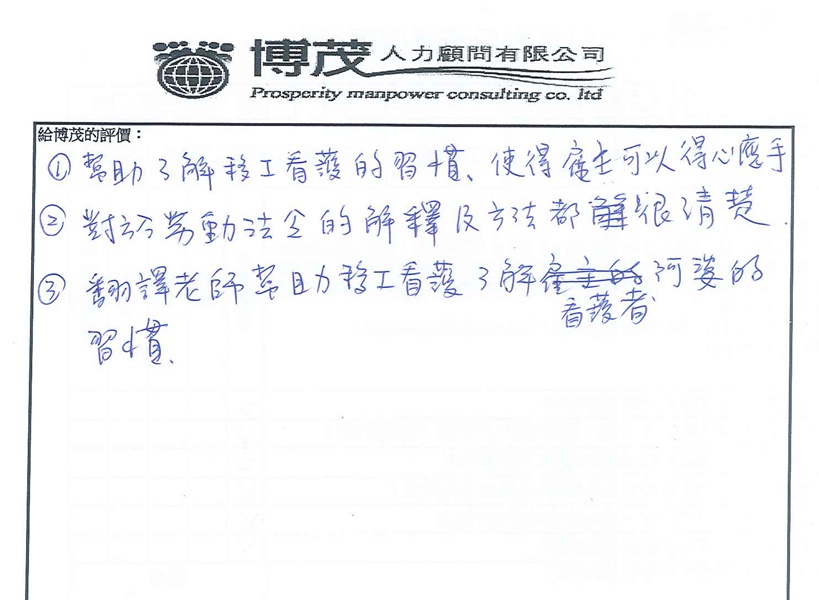 博茂人力顧問有限公司
Prosperity manpower consulting co. ltd
給博茂的評價：
① 幫助了解移工看護的習慣、使得雇主可以得心應手
② 對於勞動法令的解釋及方法都很清楚
③ 翻譯老師幫助移工看護了解雇主的阿婆的
看護者
習慣、